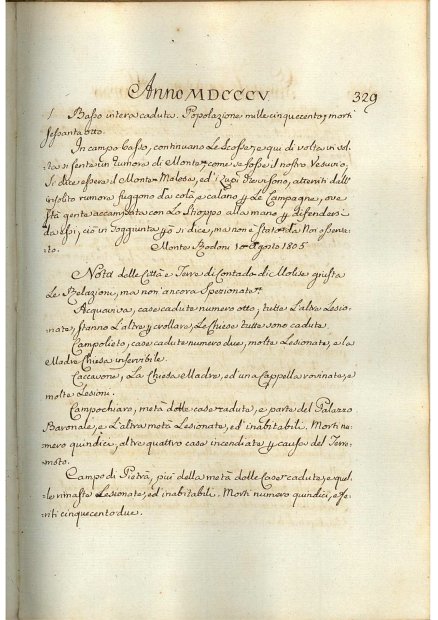 Anno MDCCCV.
329
Basso intera caduta. Popolazione mille cinquecento, morti
sessanta otto.
In campo basso, continuano le scosse, e qui di volta in vol
ta si sente un rumore di Monte, come se fosse il nostro Vesuvio.
Si dice essere il Monte Malosa, ed i Lupi che vi sono, atterriti dall'
insolito rumore fuggono da colà, e calano p le Campagne, ove
stà gente accampata con lo Shoppo alla mano p difendersi
da essi, ciò in soggiunta p si dice, ma non è stato da Noi osserva-
to.
Monte Rodoni 10 Agosto 1805
Nota delle Città e Terre di Contado di Molise giusta
le Relazioni, ma non ancora spezionate.
Acquaviva, case cadute numero otto, tutte l'altre lesio-
nate, stanno l'altre p crollare, le Chiese tutte sono cadute.
Campolieto, case cadute numero due, molte lesionate, e la
Madre Chiesa inservibile.
Caccavone, la Chiesa Madre, ed una Cappella rovinate, e
molte lesioni.
Campochiaro, metà delle case cadute, e parte del Palazzo
Baronale, e l'altra metà lesionate, ed inabitabili. Morti nu-
mero quindici, altre quattro case incendiate p causa del Terre-
moto.
Campo di Pietra, più della metà delle Case cadute, e quel-
le rimaste lesionate, ed inabitabili. Morti numero quindici, e fe-
riti cinquecento due.